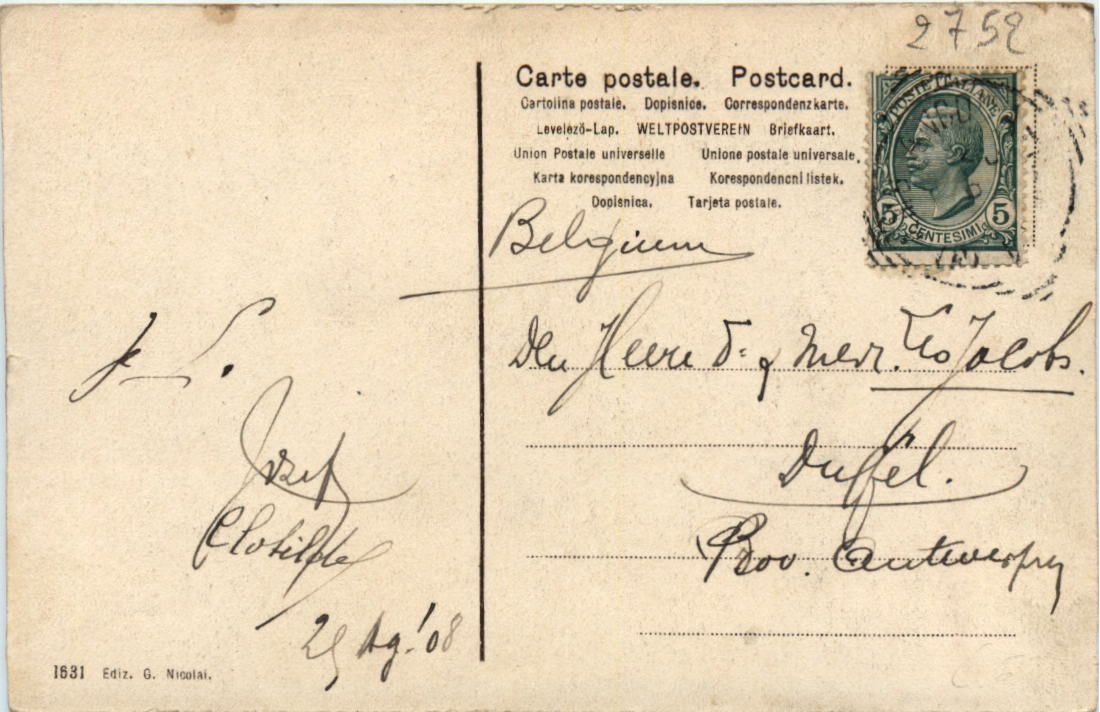 2752
Carte postale. Postcard.
Cartolina postale. Dopisnice. Correspondenzkarte.
Levelező-Lap. WELTPOSTVEREIN Briefkaart.
Union Postale universelle Unione postale universale.
Karta korespondencyjna Korespondencni listek.
Dopisnica. Tarjeta postale.
POSTE ITALIANE
5 5
CENTESIMI
Belgium
Den Heere & Mevr. Jacobs.
Duffel.
Prov. Antwerpen
Jozef
Clotilde
25 Ag.! 08
1631 Ediz. G. Nicolai.